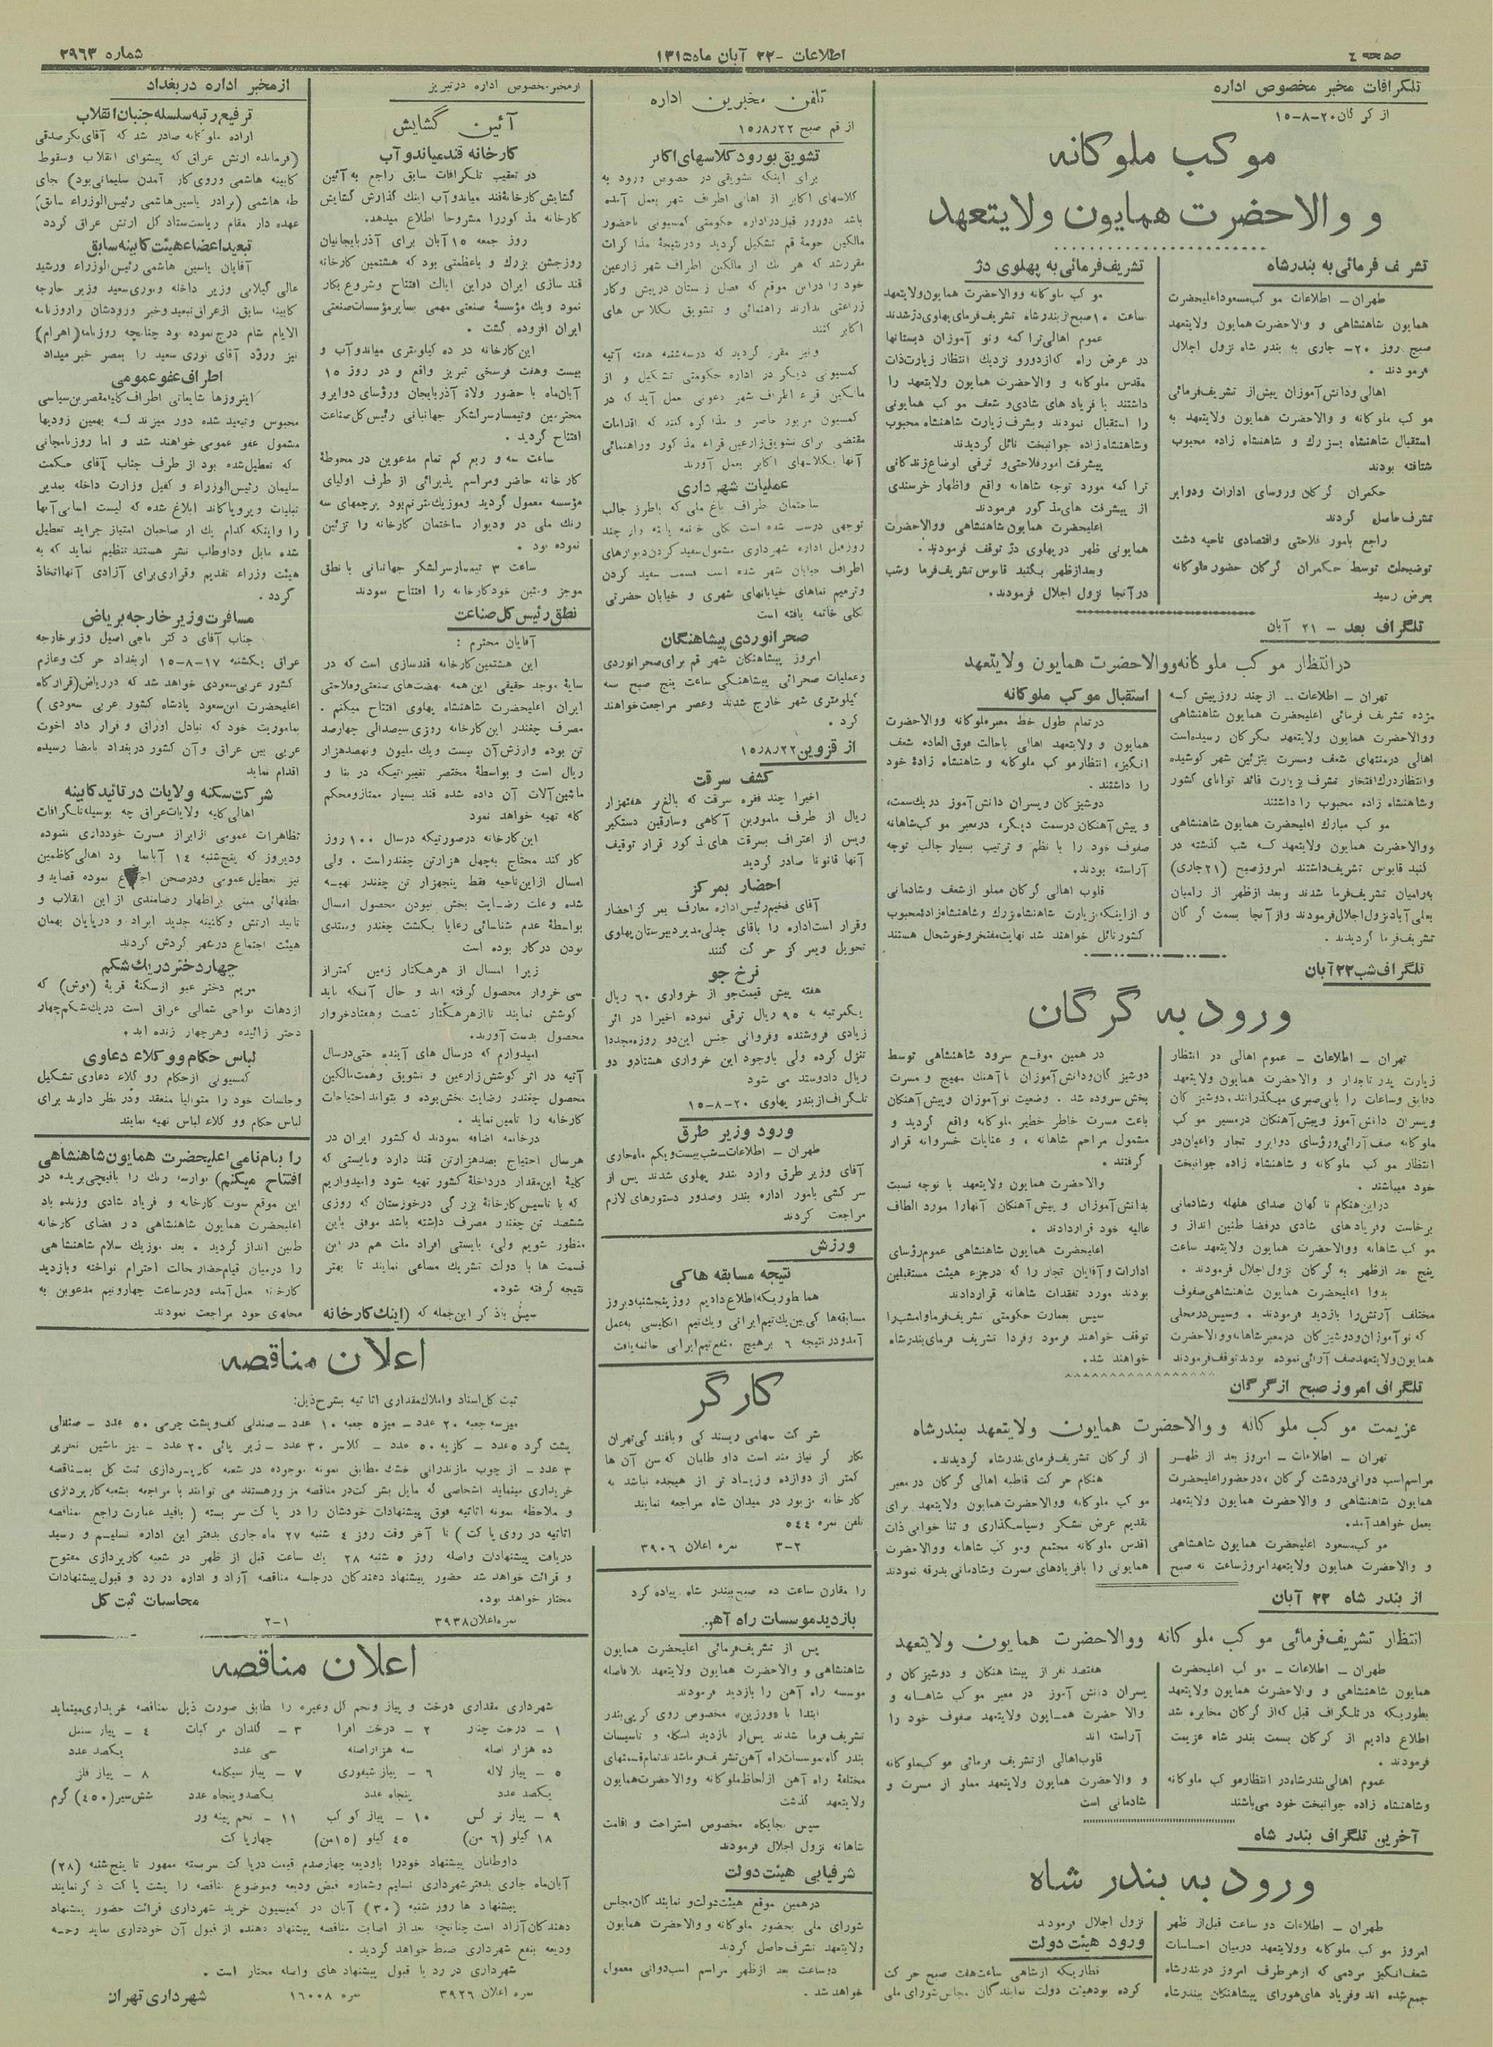 صفحه ٤
اطلاعات - ۲۲ آبان ماه ۱۳۱۵
شماره ۲۹٦۳
تلگرافات مخبر مخصوص اداره
از گرگان ۲۰-۸-۱۵
موکب ملوکانه
و والاحضرت همایون ولایتعهد
تشریف فرمائی به بندرشاه
طهران - اطلاعات موکب مسعود اعلیحضرت
همایون شاهنشاهی و والاحضرت همایون ولایتعهد
صبح روز ۲۰- جاری به بندر شاه نزول اجلال
فرمودند .
اهالی ودانش آموزان پیش از تشریف فرمائی
موکب ملوکانه و والاحضرت همایون ولایتعهد به
استقبال شاهنشاه بزرک و شاهنشاه زاده محبوب
شتافته بودند
حکمران گرکان وروسای ادارات ودوایر
تشرف حاصل کردند
راجع بامور فلاحتی واقتصادی ناحیه دشت
توضیحات توسط حکمران گرکان حضور ملوکانه
بعرض رسید
تشریف فرمائی به پهلوی دژ
موکب ملوکانه ووالاحضرت همایون ولایتعهد
ساعت ۱۰ صبح از بندرشاه تشریف فرمای پهلوی دژ شدند
عموم اهالی تراکمه ونو آموزان دبستانها
در عرض راه که از دور و نزدیك انتظار زیارت ذات
مقدس ملوکانه و والاحضرت همایون ولایتعهد را
داشتند با فریاد های شادی و شعف موکب همایونی
را استقبال نمودند وبشرف زیارت شاهنشاه محبوب
وشاهنشاه زاده جوانبخت نائل گردیدند
پیشرفت امور فلاحتی و ترقی اوضاع زندگانی
تراکمه مورد توجه شاهانه واقع واظهار خرسندی
از پیشرفت های مذکور فرمودند
اعلیحضرت همایون شاهنشاهی ووالاحضرت
همایونی ظهر در پهلوی دژ توقف فرمودند .
وبعد از ظهر بگنبد قابوس تشریف فرما وشب
در آنجا نزول اجلال فرمودند .
تلگراف بعد - ۲۱ آبان
در انتظار موکب ملوکانه ووالاحضرت همایون ولایتعهد
تهران - اطلاعات - از چند روز پیش که
مژده تشریف فرمائی اعلیحضرت همایون شاهنشاهی
ووالاحضرت همایون ولایتعهد بگرکان رسیده است
اهالی در منتهای شعف ومسرت بتزئین شهر کوشیده
وانتظار درك افتخار تشرف بزیارت قائد توانای کشور
وشاهنشاه زاده محبوب را داشتند
موکب مبارك اعلیحضرت همایون شاهنشاهی
ووالاحضرت همایون ولایتعهد که شب گذشته در
گنبد قابوس تشریف داشتند امروز صبح (۲۱ جاری)
به رامیان تشریف فرما شدند و بعد از ظهر از رامیان
بعلی آباد نزول اجلال فرمودند واز آنجا بسمت گرگان
تشریف فرما گردیدند .
استقبال موکب ملوکانه
در تمام طول خط معبر ملوکانه ووالاحضرت
همایون ولایتعهد اهالی با حالت فوق العاده شعف
انگیز، انتظار موکب ملوکانه و شاهنشاه زادۀ خود
را داشتند .
دوشیزکان و پسران دانش آموز دریك سمت،
و پیش آهنگان در سمت دیگر، در معبر موکب شاهانه
صفوف خود را با نظم و ترتیب بسیار جالب توجه
آراسته بودند.
قلوب اهالی گرکان مملو از شعف وشادمانی
و از اینکه بزیارت شاهنشاه بزرك و شاهنشاه زادۀ محبوب
کشور نائل خواهند شد نهایت مفتخر وخوشحال هستند
تلگراف شب ۲۲ آبان
ورود به گرگان
تهران - اطلاعات - عموم اهالی در انتظار
زیارت پدر تاجدار و والاحضرت همایون ولایتعهد
دقایق وساعات را با بی صبری میگذرانند. دوشیزکان
وپسران دانش آموز و پیش آهنگان در مسیر موکب
ملوکانه صف آرائی ورؤسای دوایر و تجار واعیان در
انتظار موکب ملوکانه و شاهنشاه زاده جوانبخت
خود میباشند .
در این هنگام ناگهان صدای هلهله وشادمانی
برخاست وفریاد های شادی در فضا طنین انداز و
موکب شاهانه ووالاحضرت همایون ولایتعهد ساعت
پنج بعد از ظهر به گرکان نزول اجلال فرمودند .
بدوا اعلیحضرت همایون شاهنشاهی صفوف
مختلف آرتش را بازدید فرمودند . وسپس در محلی
که نو آموزان ودوشیزکان در معبر شاهانه ووالاحضرت
همایون ولایتعهد صف آرائی نموده بودند توقف فرمودند
در همین موقع سرود شاهنشاهی توسط
دوشیزکان ودانش آموزان با آهنك مهیج و مسرت
بخش سروده شد . وضعیت نو آموزان و پیش آهنگان
باعث مسرت خاطر خطیر ملوکانه واقع گردید و
مشمول مراحم شاهانه ، و عنایات خسروانه قرار
گرفتند .
والاحضرت همایون ولایتعهد با توجه نسبت
بدانش آموزان و پیش آهنگان آنهارا مورد الطاف
عالیه خود قراردادند .
اعلیحضرت همایون شاهنشاهی عموم رؤسای
ادارات و آقایان تجار را که در جزء هیئت مستقبلین
بودند مورد تفقدات شاهانه قراردادند
سپس بعمارت حکومتی تشریف فرما وامشب را
توقف خواهند فرمود وفردا تشریف فرمای بندرشاه
خواهند شد.
تلگراف امروز صبح از گرگان
عزیمت موکب ملوکانه و والاحضرت همایون ولایتعهد ببندرشاه
تهران - اطلاعات - امروز بعد از ظهر
مراسم اسب دوانی در دشت گرکان ، در حضور اعلیحضرت
همایون شاهنشاهی و والاحضرت همایون ولایتعهد
بعمل خواهد آمد.
موکب مسعود اعلیحضرت همایون شاهنشاهی
و والاحضرت همایون ولایتعهد امروز ساعت نه صبح
از گرکان تشریف فرمای بندرشاه گردیدند.
هنگام حرکت قاطبه اهالی گرکان در معبر
موکب ملوکانه ووالاحضرت همایون ولایتعهد برای
تقدیم عرض تشکر وسپاسگذاری و ثنا خوانی ذات
اقدس ملوکانه مجتمع وموکب شاهانه ووالاحضرت
همایونی را با فریادهای مسرت وشادمانی بدرقه نمودند
از بندر شاه ۲۲ آبان
انتظار تشریف فرمائی موکب ملوکانه ووالاحضرت همایون ولایتعهد
طهران - اطلاعات - موکب اعلیحضرت
همایون شاهنشاهی و والاحضرت همایون ولایتعهد
بطوریکه در تلگراف قبل که از گرکان مخابره شد
اطلاع دادیم از گرکان بسمت بندر شاه عزیمت
فرمودند .
عموم اهالی بندرشاه در انتظار موکب ملوکانه
وشاهنشاه زاده جوانبخت خود می باشند
هفتصد نفر از پیشاهنگان و دوشیزکان و
پسران دانش آموز در معبر موکب شاهانه و
والا حضرت همایون ولایتعهد صفوف خود را
آراسته اند
قلوب اهالی از تشریف فرمائی موکب ملوکانه
و والاحضرت همایون ولایتعهد مملو از مسرت و
شادمانی است
آخرین تلگراف بندر شاه
ورود به بندر شاه
طهران - اطلاعات دو ساعت قبل از ظهر
امروز موکب ملوکانه وولایتعهد درمیان احساسات
شعف انگیز مردمی که از هر طرف امروز در بندرشاه
جمع شده اند وفریاد های هورای پیشاهنگان ببندرشاه
نزول اجلال فرمودند
ورود هیئت دولت
قطاریکه از شاهی ساعت هفت صبح حرکت
کرده بود هیئت دولت نمایندگان مجلس شورای ملی
تلفن مخبرین اداره
از قم صبح ۱۵/۸/۲۲
تشویق بورود کلاسهای اکابر
برای اینکه تشویقی در خصوص ورود به
کلاسهای اکابر از اهالی اطراف شهر بعمل آمده
باشد دوروز قبل در اداره حکومتی کمسیونی باحضور
مالکین حومۀ قم تشکیل گردید ودرنتیجۀ مذاکرات
مقرر شد که هر یك از مالکین اطراف شهر زارعین
خود را در این موقع که فصل زمستان در پیش وکار
زراعتی ندارند راهنمائی و تشویق بکلاس های
اکابر کنند
ونیز مقرر گردید که در سه شنبه هفته آتیه
کمسیونی دیگر در اداره حکومتی تشکیل و از
مالکین قراء اطراف شهر دعوتی بعمل آید که در
کمسیون مزبور حاضر و مذاکره کنند که اقدامات
مقتضی برای تشویق زارعین قراء مذکور وراهنمائی
آنها بکلاسهای اکابر بعمل آورند
عملیات شهرداری
ساختمان اطراف باغ ملی که باطرز جالب
توجهی درست شده است بکلی خاتمه یافته واز چند
روز قبل اداره شهرداری مشغول سفید کردن دیوارهای
اطراف خیابان شهر شده است قسمت سفید کردن
وترمیم نماهای خیابانهای شهری و خیابان حضرتی
بکلی خاتمه یافته است
صحرانوردی پیشاهنگان
امروز پیشاهنگان شهر قم برای صحرانوردی
وعملیات صحرائی پیشاهنگی ساعت پنج صبح سه
کیلومتری شهر خارج شدند وعصر مراجعت خواهند
کرد .
از قزوین ۱۵/۸/۲۲
کشف سرقت
اخیرا چند فقره سرقت که بالغ بر هفتهزار
ریال از طرف مامورین آگاهی وسارقین دستگیر
وپس از اعتراف بسرقت های مذکور قرار توقیف
آنها قانونا صادر گردید
احضار بمرکز
آقای فخیم رئیس اداره معارف بمرکز احضار
وقرار است اداره را باقای جدلی مدیر دبیرستان پهلوی
تحویل وبمرکز حرکت کنند
نرخ جو
هفته پیش قیمت جو از خرواری ٦۰ ریال
یکمرتبه به ۹۵ ریال ترقی نموده اخیرا در اثر
زیادی فروشنده وفراوانی جنس این دو روزه مجددا
تنزل کرده ولی باوجود این خرواری هشتادو دو
ریال دادوستد می شود
تلگراف از بندر پهلوی ۲۰-۸-۱۵
ورود وزیر طرق
طهران - اطلاعات - شب بیست ویکم ماه جاری
آقای وزیر طرق وارد بندر پهلوی شدند پس از
سرکشی بامور اداره بندر وصدور دستورهای لازم
مراجعت کردند
ورزش
نتیجه مسابقه هاکی
همانطوریکه اطلاع دادیم روز پنجشنبه دیروز
مسابقه هاکی بین یك تیم ایرانی ویك تیم انگلیسی به عمل
آمد و در نتیجه ٦ بر هیچ بنفع تیم ایرانی خاتمه یافت
کارگر
شرکت سهامی ریسندگی و بافندگی تهران
بکارگر نیاز مند است داوطلبان که سن آن ها
کمتر از دوازده و زیاد تر از هیجده نباشد به
کارخانه مزبور در میدان شاه مراجعه نمایند
تلفن نمره ٥٤٤
۳-۲ نمره اعلان ۳۹۰٦
را مقارن ساعت ده صبح ببندر شاه پیاده کرد
بازدید موسسات راه آهن
پس از تشریف فرمائی اعلیحضرت همایون
شاهنشاهی و والاحضرت همایون ولایتعهد بلافاصله
موسسه راه آهن را بازدید فرمودند
ابتدا با «درزین» مخصوص روی گرپی بندر
تشریف فرما شدند پس از بازدید اسکله و تاسیسات
بندرگاه موسسات راه آهن تشریف فرما شدند تمام قسمتهای
مختلفۀ راه آهن از لحاظ ملوکانه ووالاحضرت همایون
ولایتعهد گذشت
سپس بجایگاه مخصوص استراحت و اقامت
شاهانه نزول اجلال فرمودند
شرفیابی هیئت دولت
در همین موقع هیئت دولت و نمایندگان مجلس
شورای ملی بحضور ملوکانه ووالاحضرت همایون
ولایتعهد تشرف حاصل کردند
دوساعت بعد از ظهر مراسم اسب دوانی معمول
خواهد شد .
از مخبر مخصوص اداره در تبریز
آئین گشایش
کارخانه قند میاندوآب
در تعقیب تلگرافات سابق راجع به آئین
گشایش کارخانۀ قند میاندوآب اینك گذارش گشایش
کارخانه مذکور را مشروحا اطلاع میدهد.
روز جمعه ۱۵ آبان برای آذربایجانیان
روز جشن بزرك و باعظمتی بود که هشتمین کارخانه
قند سازی ایران در این ایالت افتتاح وشروع بکار
نمود ویك مؤسسۀ صنعتی مهمی بسایر مؤسسات صنعتی
ایران افزوده گشت .
این کارخانه در ده کیلومتری میاندوآب و
بیست وهفت فرسخی تبریز واقع و در روز ۱۵
آبان ماه با حضور ولاة آذربایجان ورؤسای دوایر و
محترمین و تیمسار سرلشگر جهانبانی رئیس کل صناعت
افتتاح گردید .
ساعت سه و ربع کم تمام مدعوین در محوطۀ
کارخانه حاضر ومراسم پذیرائی از طرف اولیای
مؤسسه معمول گردید وموزیك مترنم بود پرچمهای سه
رنك ملی در ودیوار ساختمان کارخانه را تزئین
نموده بود .
ساعت ۳ تیمسار سرلشگر جهانبانی با نطق
موجز ومتین خود کارخانه را افتتاح نمودند
نطق رئیس کل صناعت
آقایان محترم :
این هشتمین کارخانه قندسازی است که در
سایۀ موجد حقیقی این همه نهضت های صنعتی و فلاحتی
ایران اعلیحضرت شاهنشاه پهلوی افتتاح میکنم .
مصرف چغندر این کارخانه روزی سیصد الی چهارصد
تن بوده وارزش آن بیست ویك ملیون ونهصد هزار
ریال است و بواسطۀ مختصر تغییریکه در بنا و
ماشین آلات آن داده شده قند بسیار ممتاز ومحکم
کله تهیه خواهد نمود
این کارخانه در صورتیکه در سال ۱۰۰ روز
کار کند محتاج به چهل هزار تن چغندر است . ولی
امسال از این ناحیه فقط پنجهزار تن چغندر تهیه
شده وعلت رضایت بخش نبودن محصول امسال
بواسطۀ عدم شناسائی رعایا بکشت چغندر ومبتدی
بودن در کار بوده است
زیرا امسال از هر هکتار زمین کمتر از
سی خروار محصول گرفته اند و حال آنکه باید
کوشش نمایند تا از هر هکتار شصت و هفتاد خروار
محصول بدست آورند.
امیدوارم که در سال های آینده حتی در سال
آتیه در اثر کوشش زارعین و تشویق وهمت مالکین
محصول چغندر رضایت بخش بوده و بتواند احتیاجات
کارخانه را تامین نماید .
در خاتمه اضافه نمودند که کشور ایران در
هر سال احتیاج بصد هزار تن قند دارد وبایستی که
کلیۀ این مقدار در داخلۀ کشور تهیه شود وامیدواریم
که با تاسیس کارخانۀ بزرگی در خوزستان که روزی
ششصد تن چغندر مصرف داشته باشد موفق باین
منظور شویم ولی، بایستی افراد ملت هم در این
قسمت ها با دولت تشریك مساعی نمایند تا بهتر
نتیجه گرفته شود.
سپس باذکر این جمله که (اینك کارخانه
از مخبر اداره در بغداد
ترفیع رتبه سلسله جنبان انقلاب
اراده ملوکانه صادر شد که آقای بکر صدقی
(فرمانده ارتش عراق که پیشوای انقلاب وسقوط
کابینه هاشمی وروی کار آمدن سلیمانی بود) جای
طه هاشمی (برادر یاسین هاشمی رئیس الوزراء سابق)
عهده دار مقام ریاست ستاد کل ارتش عراق گردد
تبعید اعضاء هیئت کابینه سابق
آقایان یاسین هاشمی رئیس الوزراء ورشید
عالی گیلانی وزیر داخله ونوری سعید وزیر خارجه
کابینه سابق از عراق تبعید وخبر ورودشان را روزنامۀ
الایام شام درج نموده بود چنانچه روزنامه (اهرام)
نیز ورود آقای نوری سعید را بمصر خبر میداد
اطراف عفو عمومی
اینروزها شایعاتی اطراف کلیه مقصرین سیاسی
محبوس وتبعید شده دور میزند که بهمین زودیها
مشمول عفو عمومی خواهند شد و اما روزنامجاتی
که تعطیل شده بود از طرف جناب آقای حکمت
سلیمان رئیس الوزراء و کفیل وزارت داخله بمدیر
تبلیات وپروپاکاند ابلاغ شده که لیست اسامی آنها
را واینکه کدام یك از صاحبان امتیاز جراید تعطیل
شده مایل وداوطلب نشر هستند تنظیم نماید که به
هیئت وزراء تقدیم وقراری برای آزادی آنها اتخاذ
گردد .
مسافرت وزیر خارجه بریاض
جناب آقای دکتر ناجی اصیل وزیر خارجه
عراق یکشنبه ۱۷-۸-۱۵ از بغداد حرکت وعازم
کشور عربی سعودی خواهد شد که در ریاض (قرارگاه
اعلیحضرت ابن سعود پادشاه کشور عربی سعودی )
بماموریت خود که تبادل اوراق و قرار داد اخوت
عربی بین عراق و آن کشور در بغداد بامضا رسیده
اقدام نماید
شرکت سکنه ولایات در تائید کابینه
اهالی کلیه ولایات عراق چه بوسیله تلگرافات
تظاهرات عمومی از ابراز مسرت خودداری ننموده
ودیروز که پنجشنبه ۱٤ آبانماه بود اهالی کاظمین
نیز تعطیل عمومی ودر صحن نموده قصاید و
نطقهائی مبنی بر اظهار رضامندی از این انقلاب و
تایید ارتش و کابینه جدید ایراد و در پایان بهمان
هیئت اجتماع در شهر گردش کردند
چهار دختر در یك شکم
مریم دختر عبو از سکنۀ قریۀ (موش) که
از دهات نواحی شمالی عراق است در یك شکم چهار
دختر زائیده وهر چهار زنده اند .
لباس حکام ووکلاء دعاوی
کمسیونی از حکام ووکلاء دعاوی تشکیل
وجلسات خود را متوالیا منعقد ودر نظر دارند برای
لباس حکام ووکلاء لباس تهیه نمایند
را بنام نامی اعلیحضرت همایون شاهنشاهی
افتتاح میکنم) نوار سه رنك را باقیچی بریده در
این موقع سوت کارخانه و فریاد شادی وزنده باد
اعلیحضرت همایون شاهنشاهی در فضای کارخانه
طنین انداز گردید . بعد موزیك سلام شاهنشاهی
را در میان قیام حضار بحالت احترام نواخته وبازدید
کارخانه بعمل آمده ودر ساعت چهار ونیم مدعوین به
محلهای خود مراجعت نمودند
اعلان مناقصه
ثبت کل اسناد واملاك مقداری اثاثیه بشرح ذیل:
میز سه جعبه ۲۰ عدد - میز ٥ جعبه ۱۰ عدد - صندلی کف وپشت چرمی ٥۰ عدد - صندلی
پشت گرد ٥ عدد - کازیه ٥۰ عدد - کلاسر ۳۰ عدد - زیر پائی ۲۰ عدد - میز ماشین تحریر
۳ عدد - از چوب مازندرانی خشك مطابق نمونه موجوده در شعبه کارپردازی ثبت کل بمناقصه
خریداری مینماید اشخاصی که مایل بشرکت در مناقصه مزبور هستند می توانند با مراجعه بشعبه کارپردازی
و ملاحظه نمونه اثاثیه فوق پیشنهادات خودشان را در پاکت سر بسته ( باقید عبارت راجع بمناقصه
اثاثیه در روی پاکت ) تا آخر وقت روز ٤ شنبه ۲۷ ماه جاری بدفتر این اداره تسلیم و رسید
دریافت پیشنهادات واصله روز ٥ شنبه ۲۸ یك ساعت قبل از ظهر در شعبه کارپردازی مفتوح
و قرائت خواهد شد حضور پیشنهاد دهندگان در جلسه مناقصه آزاد و اداره در رد و قبول پیشنهادات
مختار خواهد بود.
محاسبات ثبت کل
نمره اعلان ۳۹۳۸ ۲-۱
اعلان مناقصه
شهرداری مقداری درخت و پیاز وتخم گل وغیره را طابق صورت ذیل بمناقصه خریداری مینماید
۱ - درخت چنار ۲ - درخت افرا ۳ - گلدان مرکبات ٤ - پیاز سنبل
ده هزار اصله سه هزار اصله سی عدد یکصد عدد
٥ - پیاز لاله ٦ - پیاز شیپوری ۷ - پیاز سیکلمه ۸ - پیاز فلز
یکصد عدد پنجاه عدد یکصد و پنجاه عدد شش سیر (٤٥۰) گرم
۹ - پیاز نرگس ۱۰ - پیاز کوکب ۱۱ - تخم پینه ور
۱۸ کیلو (٦ من) ٤٥ کیلو (۱٥ من) چهار پاکت
داوطلبان پیشنهاد خود را باودیعه چهار صدم قیمت در پاکت سر بسته ممهور تا پنج شنبه (۲۸)
آبان ماه جاری بدفتر شهرداری تسلیم وشماره قبض ودیعه وموضوع مناقصه را پشت پاکت ذکر نمایند
پیشنهاد ها روز شنبه (۳۰) آبان در کمیسیون خرید شهرداری قرائت حضور پیشنهاد
دهندگان آزاد است چنانچه بعد از اصابت مناقصه پیشنهاد دهنده از قبول آن خودداری نماید وجه
ودیعه بنفع شهرداری ضبط خواهد گردید .
شهرداری در رد یا قبول پیشنهاد های واصله مختار است .
نمره اعلان ۳۹۲٦ نمره ۱٦۰۰۸ شهرداری تهران